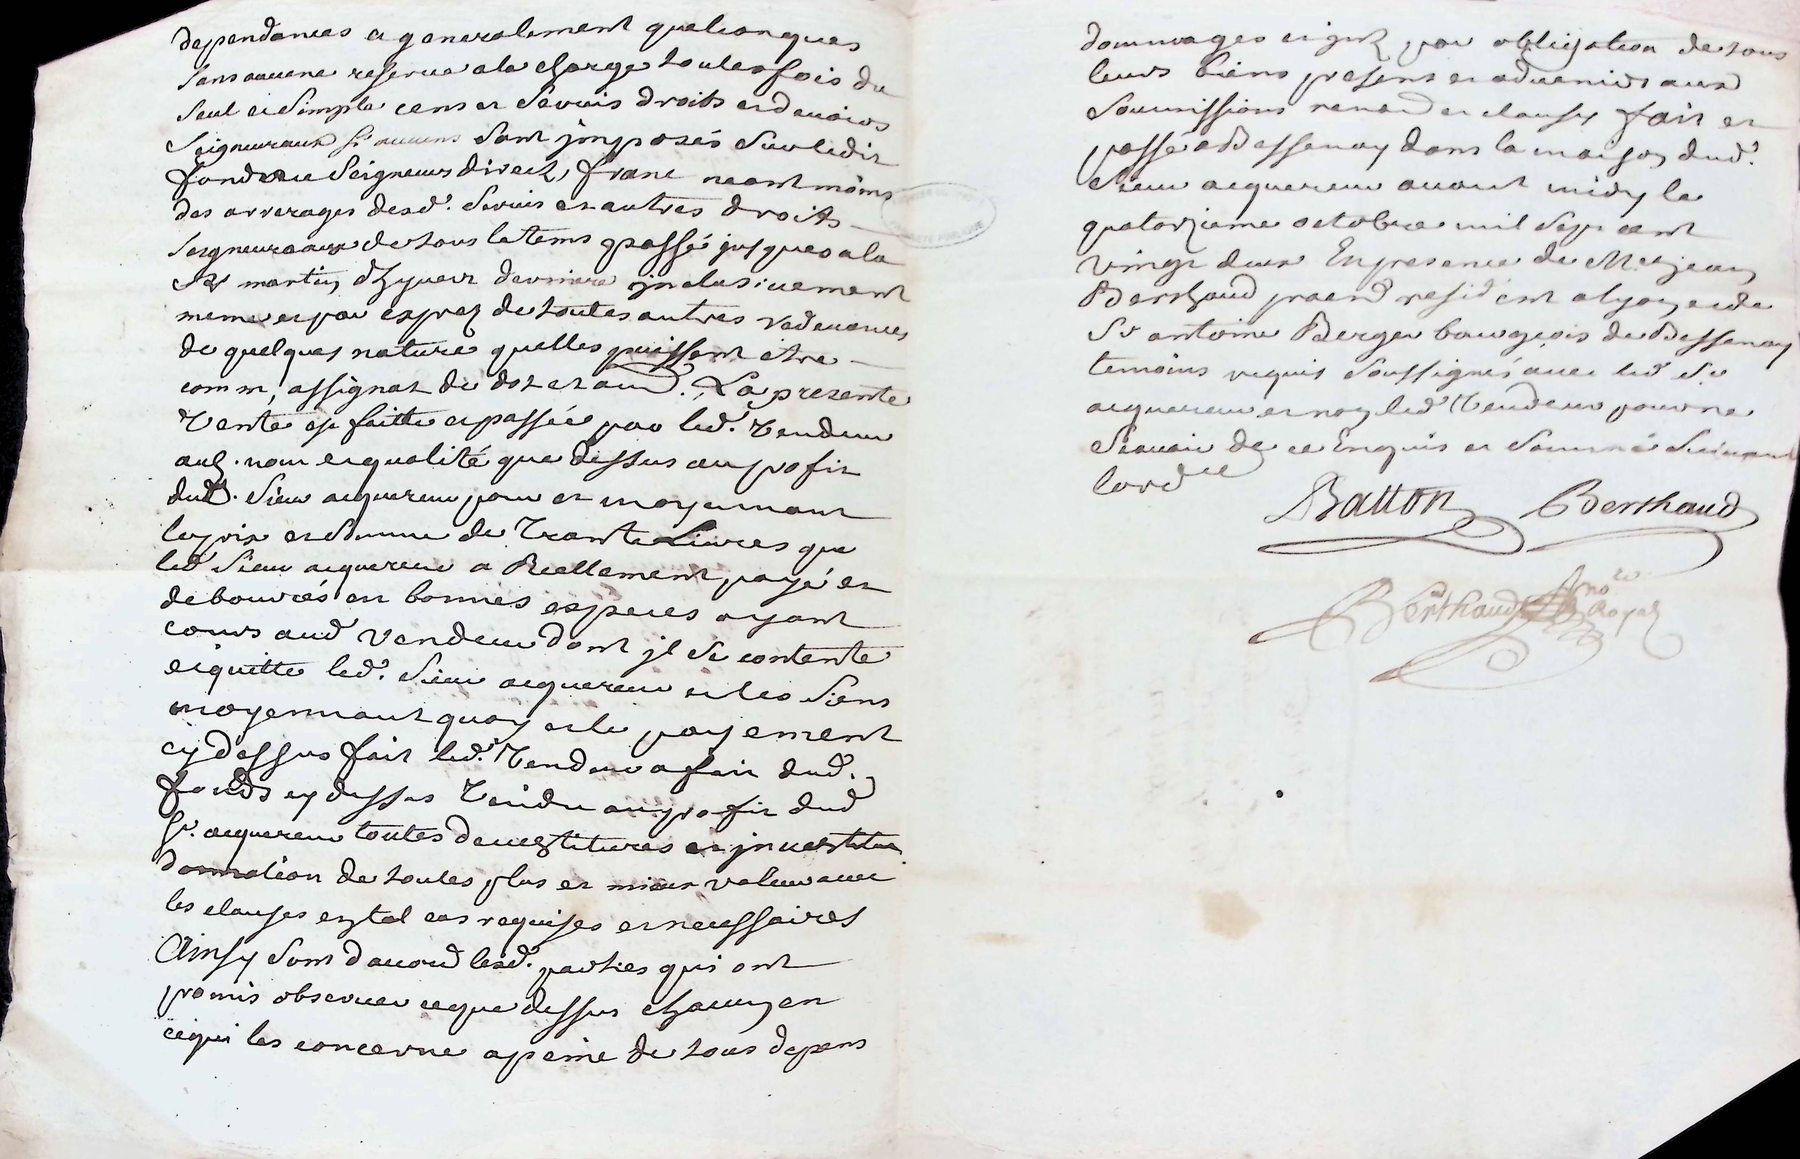 dependances et generalement quelconques
sans aucune reserve a la charge toutesfois du
seul et simple cens et servis droits et devoirs
seigneuraux si aucuns sont jmposés sur ledit
fonds au seigneur direct, franc neant moins
des arrerages desd. servis et autres droits
seigneuraux de tous le tems passé jusques a la
St martin d'hyver derniere jnclusivement
meme et par exprez de toutes autres redevances
de quelques nature quelles puissent etre
comm, assignat de dot et aud. La presente
Vente est faitte et passée par led. Vendeur
aud. nom et qualité que dessus au profit
dud. Sieur acquereur pour et moyennant
le prix et somme de Trante Livres que
led Sieur acquereur a Reellement payé et
debourcés en bonnes especes ayant
cours aud Vendeur dont jl se contente
et quitte led. Sieur acquereur et les siens
moyennant quoy et le payement
cy dessus fait led. Vendeur a fait dud.
fonds cy dessus Vendu au profit dud
Sr. acquereur toutes devestitures et jnvestiture
donnation de toutes plus et mieux value avec
les clauses en tel cas requises et necessaires
Ainsy sont d'accord lesd. parties qui ont
promis observer ce que dessus chacun en
ce qui les concerne a peine de tous depens
dommages et jnt par obligation de tous
leurs biens presens et advenirs aux
soumissions renon et clauses fait et
passé a Bessenay dans la maison dud.
sieur acquereur avant midy le
quatorzieme octobre mil sept cent
vingt deux En presence de Me jean
Berthaud praend resident a lyon et de
Sr antoine Berger bourgeois de Bessenay
temoins requis soussignés avec led Sr
acquereur et non led Vendeur pour ne
scavoir de ce Enquis et sommé suivant
lordce
Batton Berthaud
Berthaud nore Royal